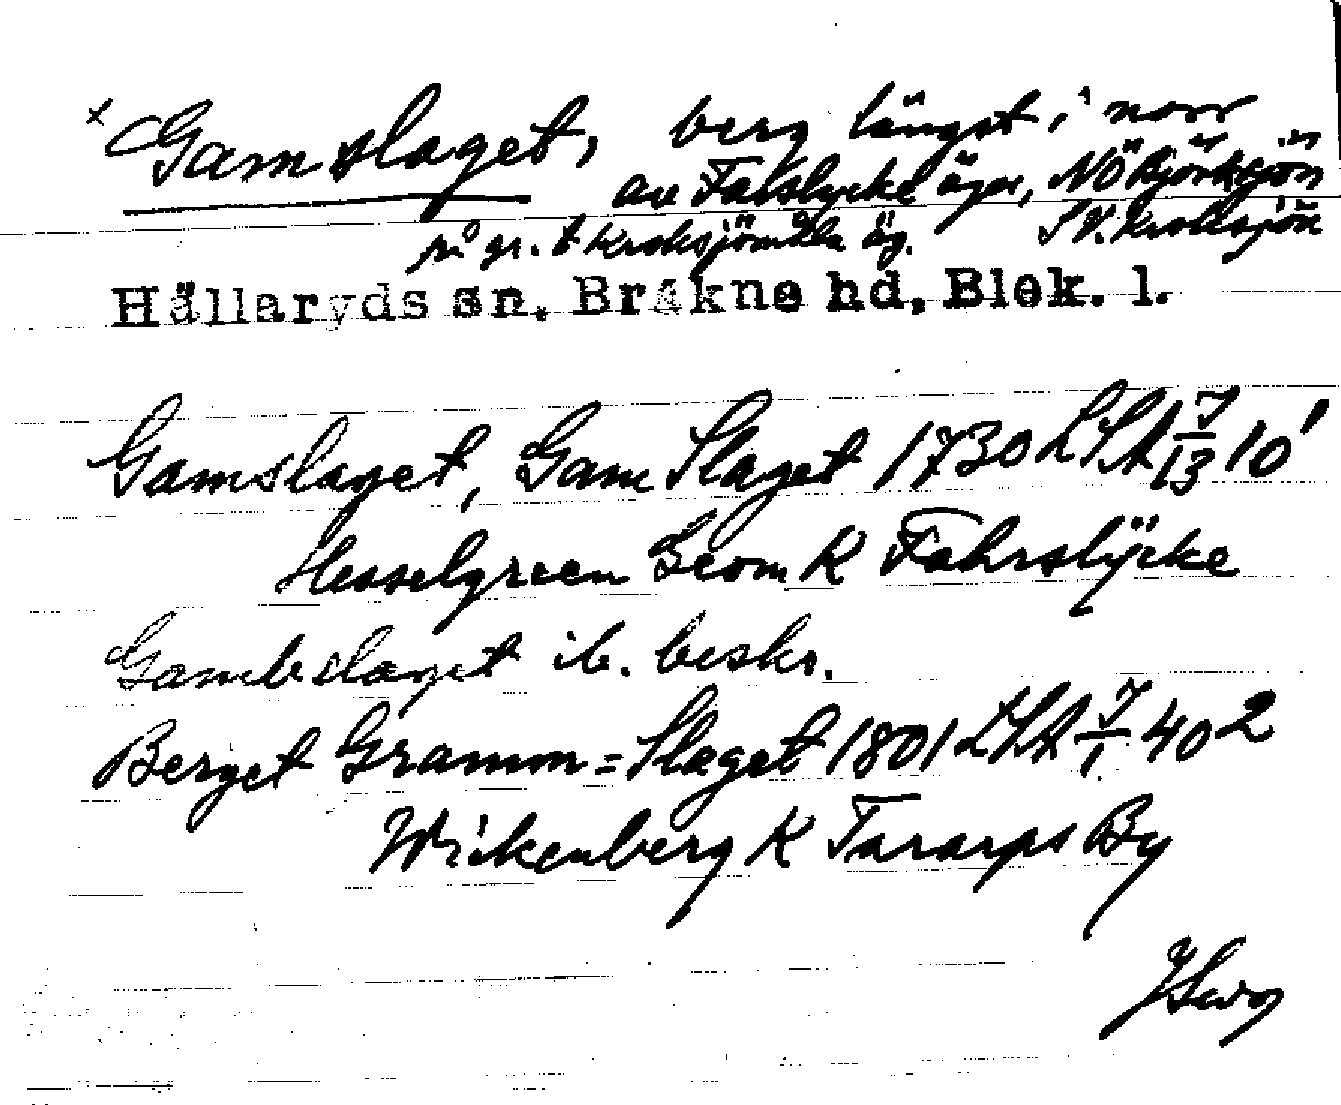 x Gamslaget, berg längst i norr
av Falslycke ägor, NÖ Björksjön
på gr. t Kroksjömåla äg. SV. Kroksjön
Hällaryds sn. Bräkne hd, Blek. l.
Gamslaget, Gam Slaget 1730 LSA 7/13 10'
Hesselgreen Geom K Fahrslÿcke
Gambslaget ib. beskr.
Berget Gramm=Slaget 1801 LSA 7/1 40 2
Wickenberg K Tararps By